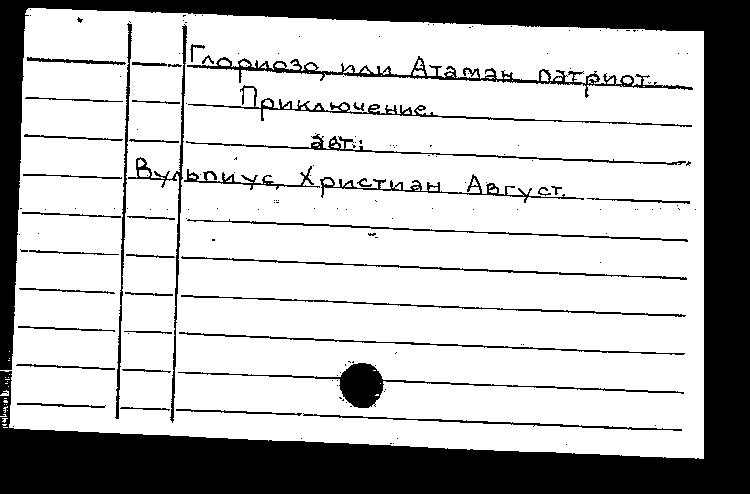 Глориозо, или Атаман патриот.
Приключение.
авт.:
Вульпиус, Христиан Август.